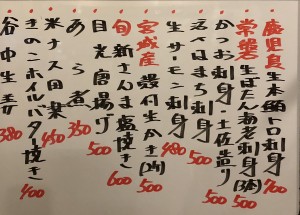 鹿児島 生本鮪トロ刺身 700
常磐産 生ぼたん海老刺身(3本) 500
かつお刺身・土佐造り 500
活〆はまち刺身 500
生サーモン刺身 480
宮城産 殻付生かき(2ヶ) 500
旬 新さんま塩焼き 600
目光唐揚げ 500
あら煮 350
米ナス田楽 450
きのこホイルバター焼き 400
谷中生姜 380